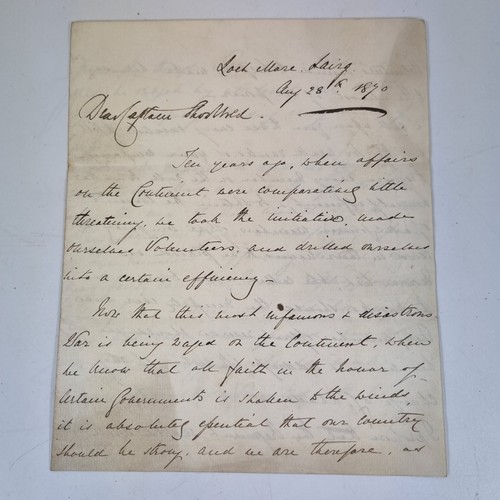 Loch More. Lairg.
Aug 28th 1870
Dear Captain
Ten years ago, when affairs
on the Continent were comparatively little
threatening, we took the initiative, made
ourselves Volunteers, and drilled ourselves
into a certain efficiency -
Now that this most infamous & disastrous
War is being waged on the Continent, when
we know that all faith in the honor of
certain Governments is shaken to the winds,
it is absolutely essential that our Country
should be strong, and we are therefore, as